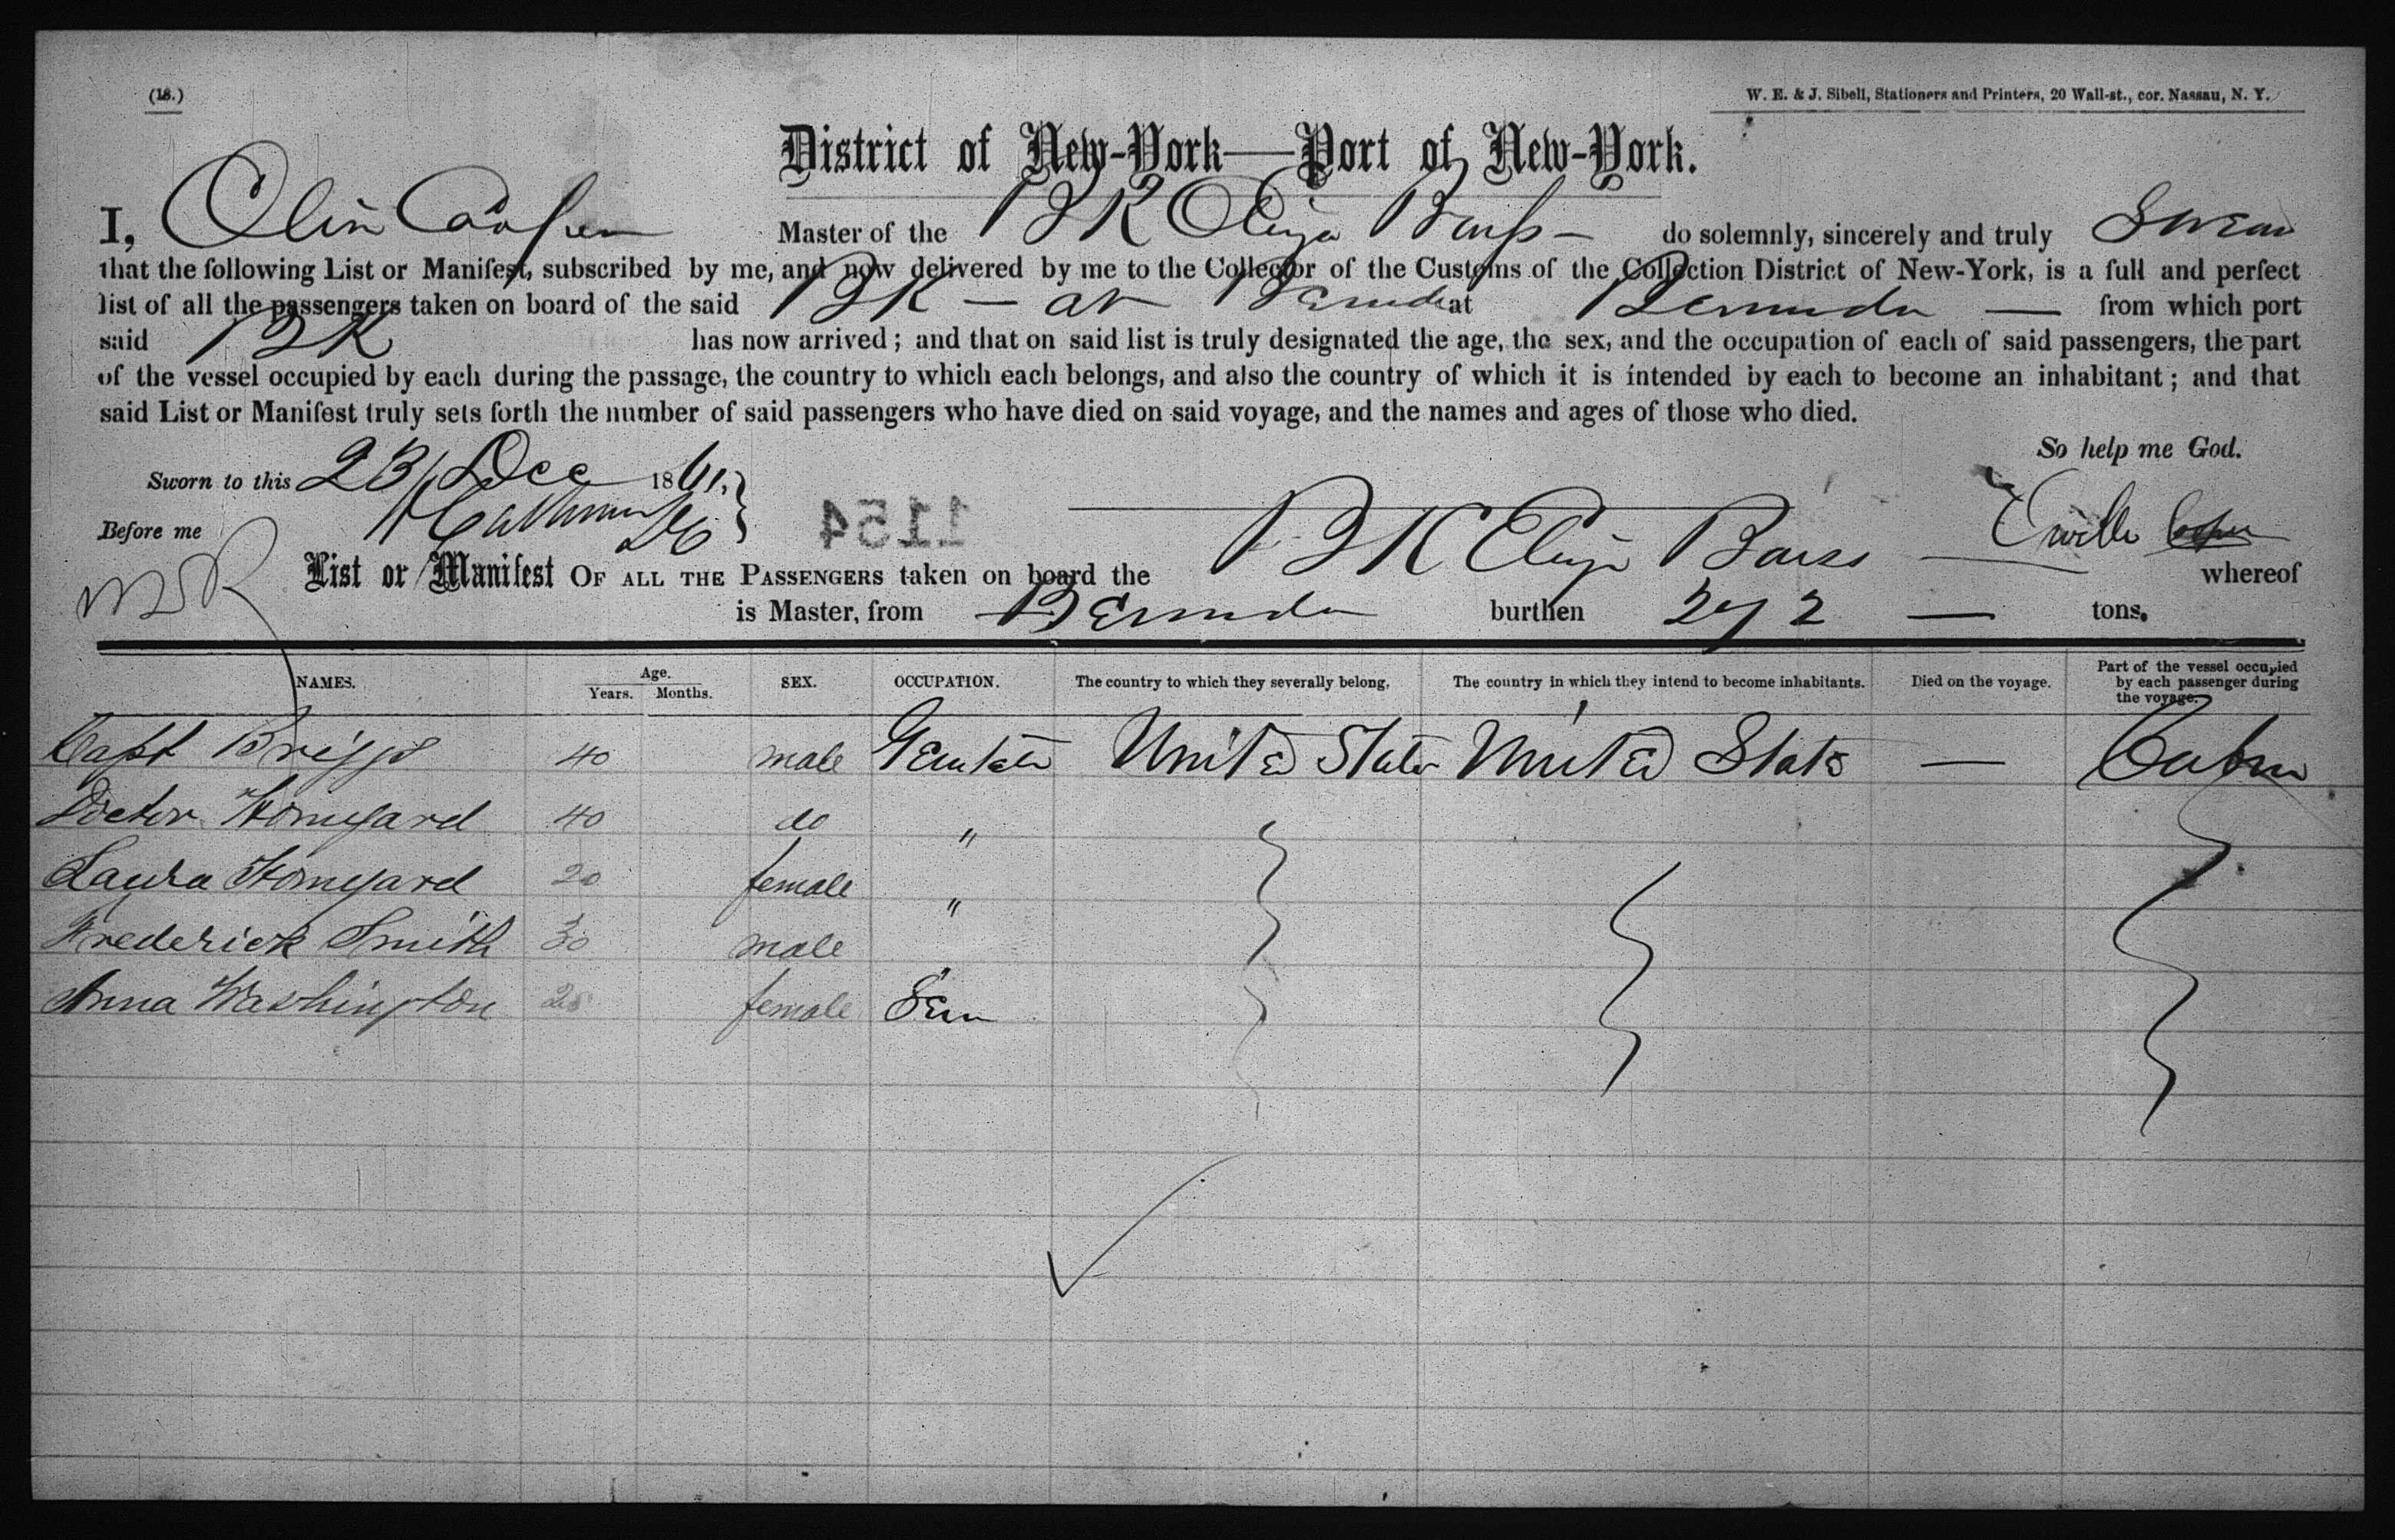 (18.)
W. E. & J. Sibell, Stationers and Printers, 20 Wall-st., cor. Nassau, N. Y.
District of New-York—Port of New-York.
I, Master of the BK Eliza Barss — do solemnly, sincerely and truly Swear
that the following List or Manifest, subscribed by me, and now delivered by me to the Collector of the Customs of the Collection District of New-York, is a full and perfect
list of all the passengers taken on board of the said BK — at Bermuda at Bermuda — from which port
said BK has now arrived; and that on said list is truly designated the age, the sex, and the occupation of each of said passengers, the part
of the vessel occupied by each during the passage, the country to which each belongs, and also the country of which it is intended by each to become an inhabitant; and that
said List or Manifest truly sets forth the number of said passengers who have died on said voyage, and the names and ages of those who died.
So help me God.
Sworn to this 23 Dec 1861.
Before me
1154
List or Manifest OF ALL THE PASSENGERS taken on board the BK Eliza Barss — whereof
is Master, from Bermuda burthen 272 — tons.
NAMES. Age. Years. Months. SEX. OCCUPATION. The country to which they severally belong. The country in which they intend to become inhabitants. Died on the voyage. Part of the vessel occupied by each passenger during the voyage.
Capt Briggs 40 male United States United States — Cabin
Doctor Homyard 40 do "
Laura Homyard 20 female "
Frederick Smith 30 male "
Anna Washington 28 female